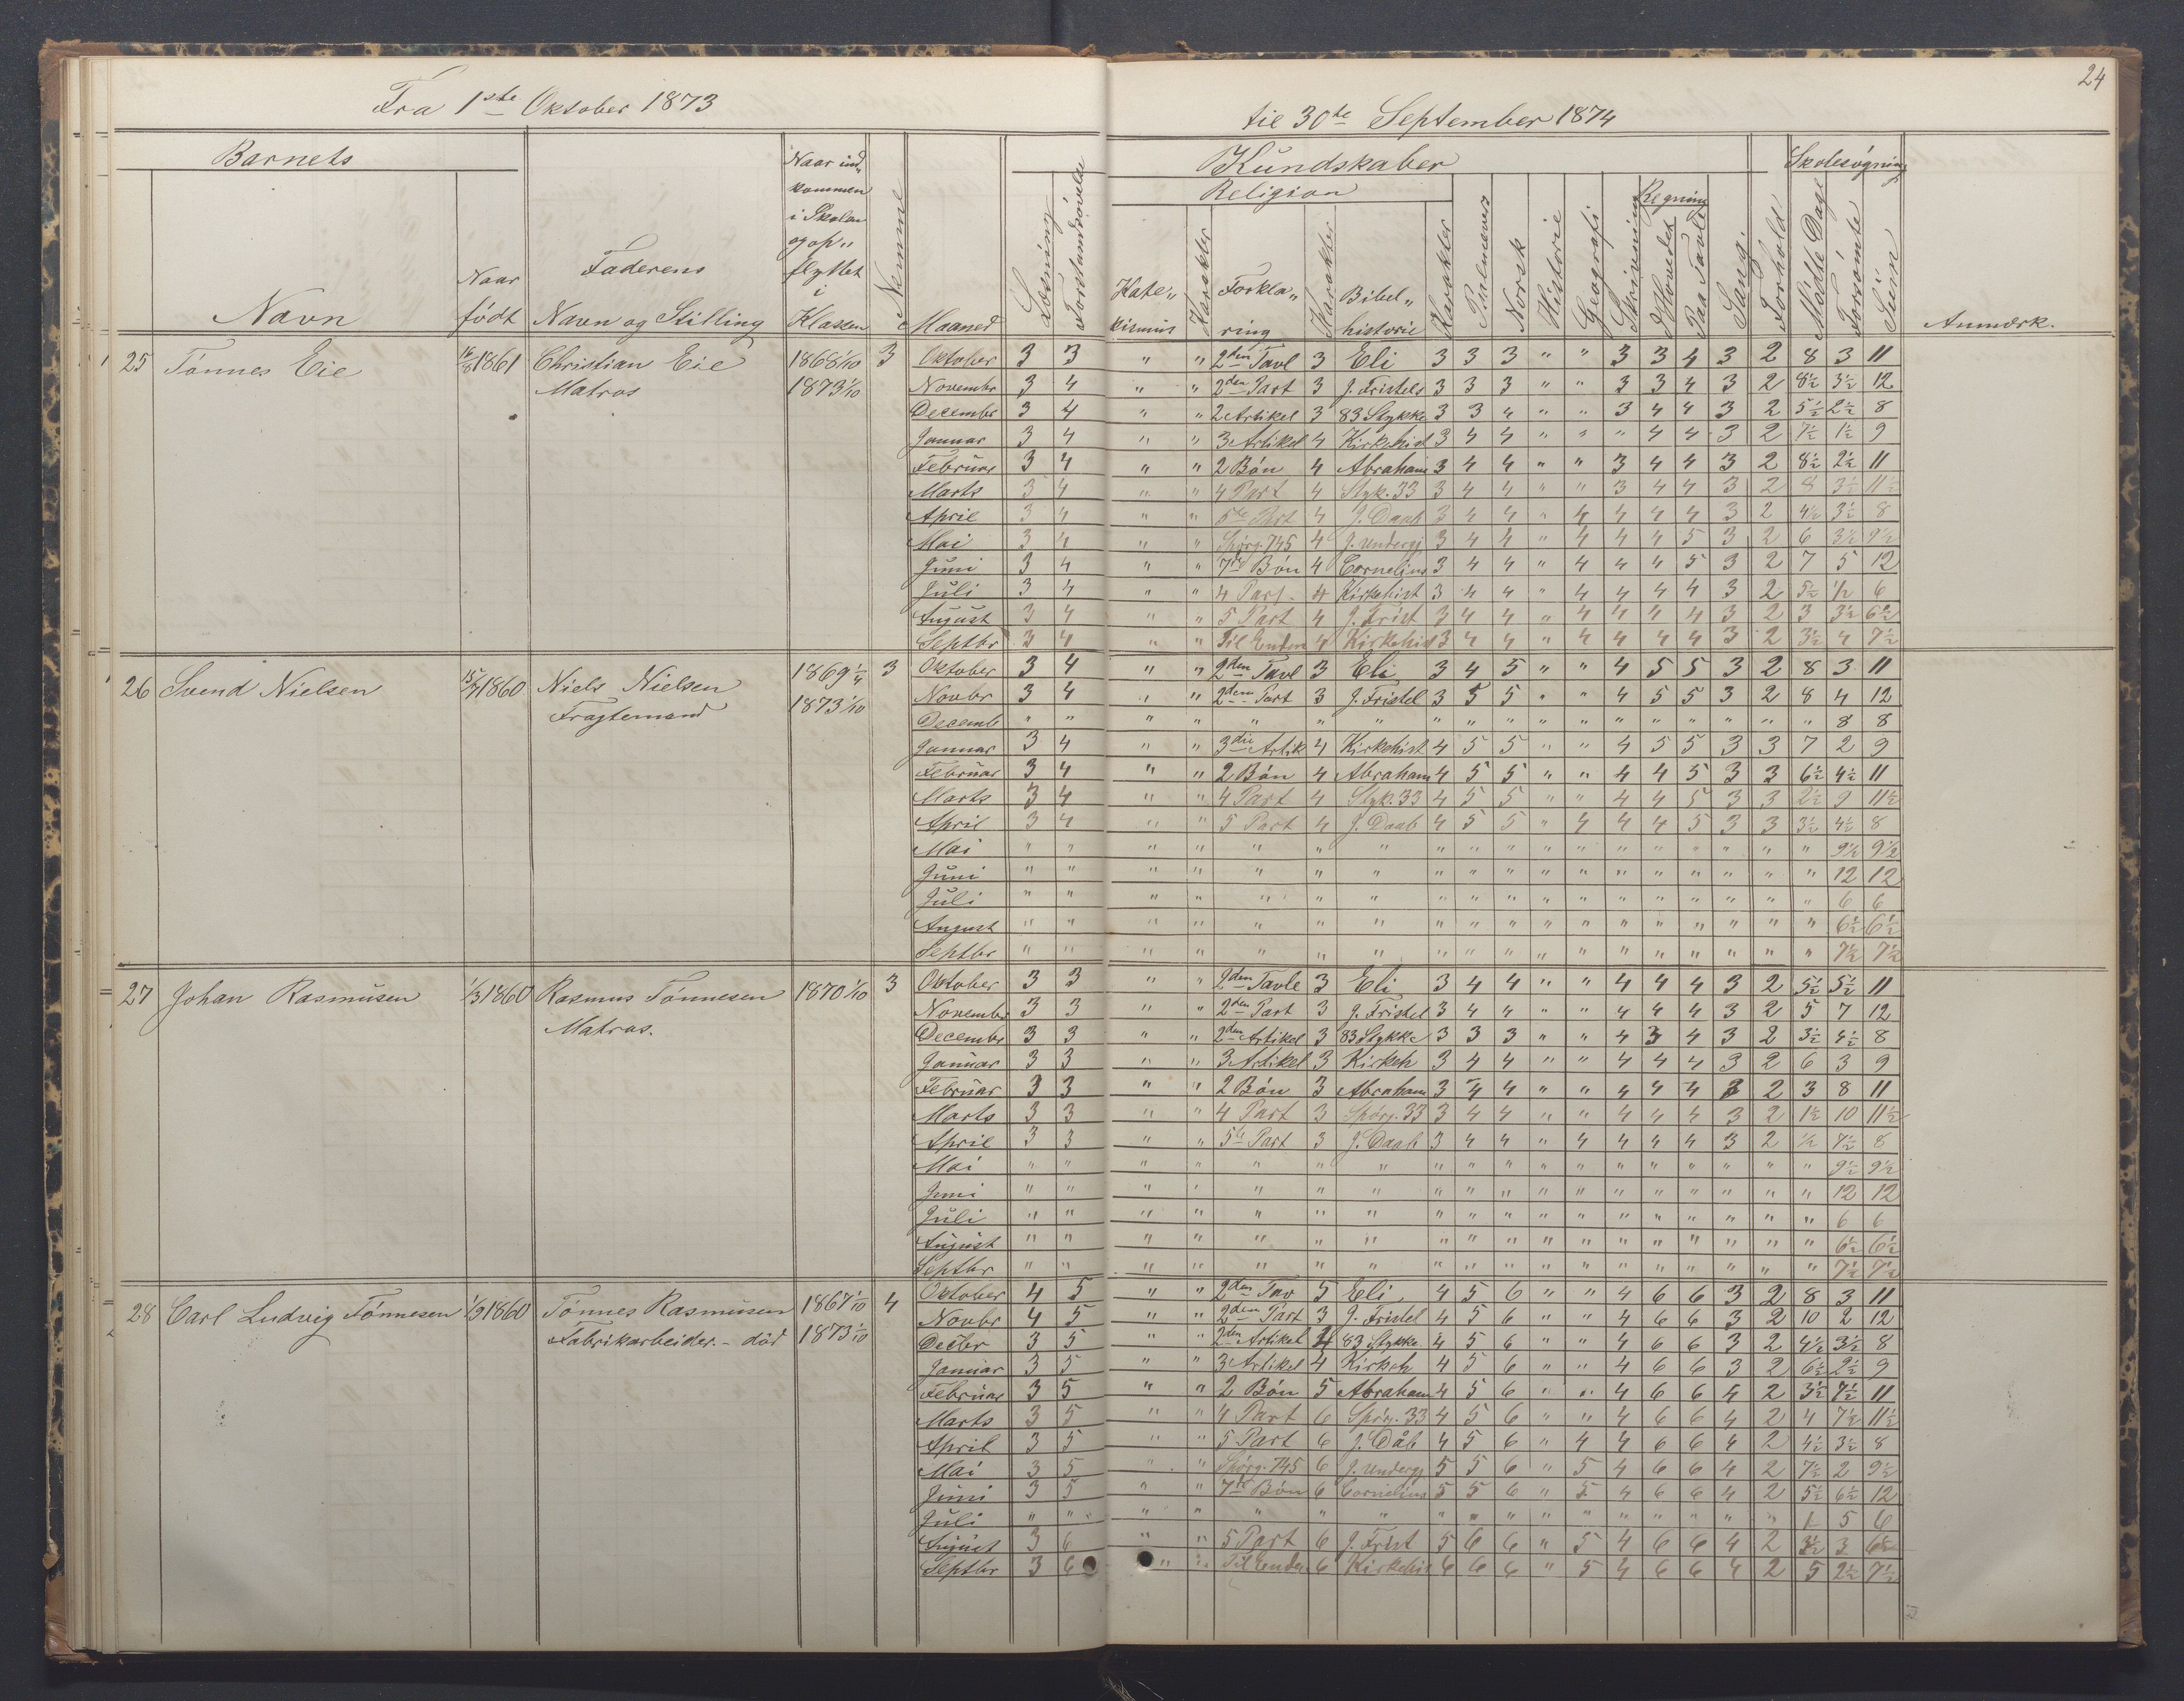 24
Fra 1ste Oktober 1873
til 30te September 1874
Barnets
Kundskaber
Skolesøgning
Religion
Regning
Navn
Naar født
Faderens Navn og Stilling
Naar ind„ kommen i Skolen og op„ flyttet i Klassen
Nemme
Maaned
Læsning
Forstandsøvelse
Kate„ kismus
Karakter
Forkla„ ring
Karakter
Bibel„ historie
Karakter
Norsk
Historie
Geografi
Skrivning
I Hovedet
Paa Tavle
Sang.
Forhold
Mødte Dage
Forsømte
Sum
Anmærk.
25 Tønnes Eie 16/8 1861 Christian Eie 1868 1/10 3 Oktober 3 3 " " 2den Tavl 3 Eli 3 3 3 " " 3 3 4 3 2 8 3 11
Matros 1873 1/10 Novembr 3 4 " " 2den Part 3 J. Fristels 3 3 3 " " 3 3 4 3 2 8½ 3½ 12
December 3 4 " " 2 Artikel 3 83 Stykke 3 3 4 " " 3 4 4 3 2 5½ 2½ 8
Januar 3 4 " " 3 Artikel 4 Kirkehist 3 4 4 " " " 4 4 3 2 7½ 1½ 9
Februar 3 4 " " 2 Bøn 4 Abraham 3 4 4 " " 3 4 4 3 2 8½ 2½ 11
Marts 3 4 " " 4 Part 4 Styk. 33 3 4 4 " " 3 4 4 3 2 8 3½ 11½
April 3 4 " " 5te Part 4 J. Daab 3 4 4 " 4 4 4 4 3 2 4½ 3½ 8
Mai 3 4 " " Spørg. 745 4 J. Undergj 3 4 4 " 4 4 4 5 3 2 6 3½ 9½
Juni 3 4 " " 7de Bøn 4 Cornelius 3 4 4 " 4 4 4 5 3 2 7 5 12
Juli 3 4 " " 4 Part. 4 Kirkehist 3 4 4 " 4 4 4 4 3 2 5½ ½ 6
August 3 4 " " 5 Part 4 J. Frist 3 4 4 " 4 4 4 4 3 2 3 3½ 6½
Septbr 3 4 " " Til Enden 4 Kirkehist 3 4 4 " 4 4 4 4 3 2 3½ 4 7½
26 Svend Nielsen 15/4 1860 Niels Nielsen 1869 1/4 3 Oktober 3 4 " " 2den Tavl 3 Eli 3 4 5 " " 4 5 5 3 2 8 3 11
Fragtemand 1873 1/10 Novbr 3 4 " " 2den Part 3 J. Fristel 3 5 5 " " 4 5 5 3 2 8 4 12
Decemb " " " " " " " " " " " " " " " " " " 8 8
Januar 3 4 " " 3die Artik 4 Kirkehist 4 5 5 " " 4 5 5 3 3 7 2 9
Februar 3 4 " " 2 Bøn 4 Abraham 4 5 5 " " 4 4 5 3 3 6½ 4½ 11
Marts 3 4 " " 4 Part 4 Styk. 33 4 5 5 " " 4 4 5 3 3 2½ 9 11½
April 3 4 " " 5 Part 4 J. Daab 4 5 5 " 4 4 4 5 3 3 3½ 4½ 8
Mai " " " " " " " " " " " " " " " " " " 9½ 9½
Juni " " " " " " " " " " " " " " " " " " 12 12
Juli " " " " " " " " " " " " " " " " " " 6 6
August " " " " " " " " " " " " " " " " " " 6½ 6½
Septbr " " " " " " " " " " " " " " " " " " 7½ 7½
27 Johan Rasmusen 1/3 1860 Rasmus Tønnesen 1870 1/10 3 Oktober 3 3 " " 2den Tavle 3 Eli 3 4 4 " " 4 4 4 3 2 5½ 5½ 11
Matros. Novembr 3 3 " " 2den Part 3 J. Fristel 3 4 4 " " 4 4 4 3 2 5 7 12
Decembr 3 3 " " 2den Artikel 3 83 Stykke 3 3 3 " " 4 3 4 3 2 3½ 4½ 8
Januar 3 3 " " 3 Artikel 3 Kirkeh 3 4 4 " " 4 4 4 3 2 6 3 9
Februar 3 3 " " 2 Bøn 3 Abraham 3 4 4 " " 4 4 4 3 2 3 8 11
Marts 3 3 " " 4 Part 3 Spørg. 33 3 4 4 " " 4 4 4 3 2 1½ 10 11½
April 3 3 " " 5te Part 3 J. Daab 3 4 4 " 4 4 4 4 3 2 ½ 7½ 8
Mai " " " " " " " " " " " " " " " " " " 9½ 9½
Juni " " " " " " " " " " " " " " " " " " 12 12
Juli " " " " " " " " " " " " " " " " " " 6 6
August " " " " " " " " " " " " " " " " " " 6½ 6½
Septbr " " " " " " " " " " " " " " " " " " 7½ 7½
28 Carl Ludvig Tønnesen 1/9 1860 Tønnes Rasmusen 1867 1/10 4 Oktober 4 5 " " 2den Tav 5 Eli 4 5 6 " " 4 6 6 3 2 8 3 11
Fabrikarbeider. - död 1873 1/10 Novbr 4 5 " " 2den Part 3 J. Fristel 4 5 6 " " 4 6 6 3 2 10 2 12
Decbr 3 5 " " 2den Artikel 4 83 Stykke 4 5 6 " " 4 6 6 3 2 4½ 3½ 8
Januar 3 5 " " 3 Artikel 4 Kirkeh 4 5 6 " " 4 6 6 3 2 6½ 2½ 9
Februar 3 5 " " 2 Bøn 5 Abraham 4 5 6 " " 4 6 6 4 2 3½ 7½ 11
Marts 3 5 " " 4 Part 6 Spörg. 33 4 5 6 " " 4 6 6 4 2 4 7½ 11½
April 3 5 " " 5 Part 6 J. Dåb 4 5 6 " 4 4 6 6 4 2 4½ 3½ 8
Mai 3 5 " " Spörg. 745 6 J. Undergj 5 5 6 " 5 4 6 6 4 2 7½ 2 9½
Juni 3 5 " " 7de Bön 6 Cornelius 5 5 6 " 5 4 6 6 4 2 5½ 6½ 12
Juli " " " " " " " " " " " " " " " " " 1 5 6
August 3 6 " " 5 Part 6 J. Frist 5 6 6 " 5 4 6 6 4 2 3½ 3 6½
Septbr 3 6 " " Til Enden 6 Kirkehis 6 6 6 " 5 4 6 6 4 2 5 2½ 7½